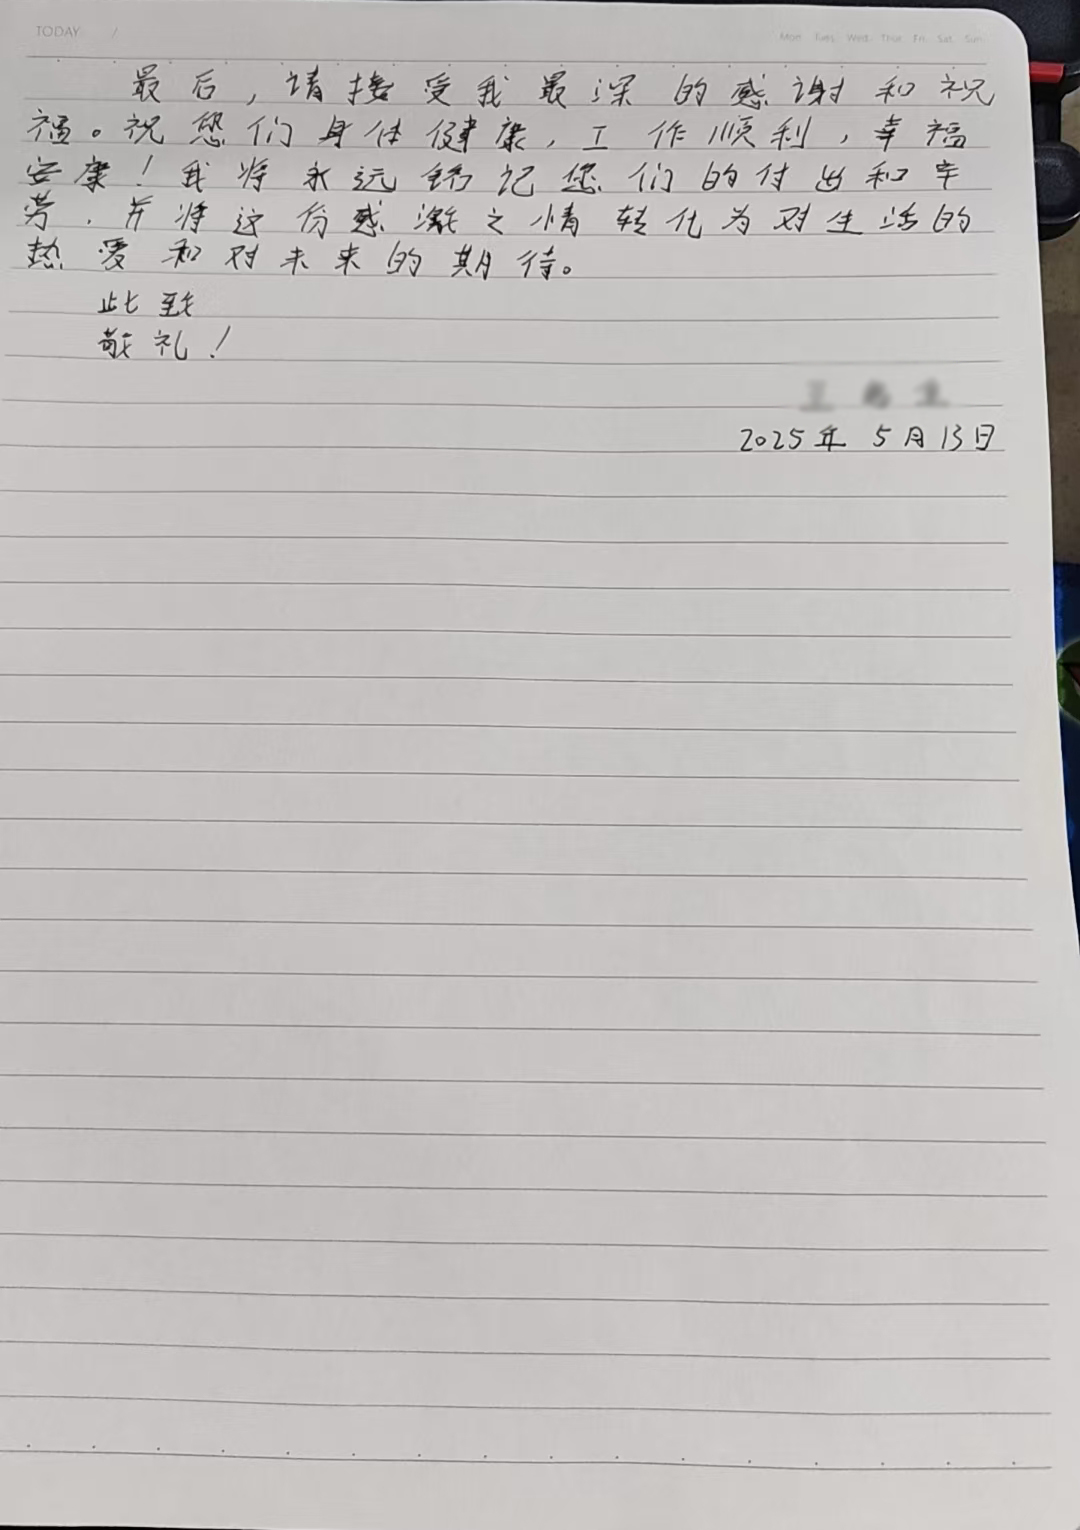 TODAY /
Mon Tues Wed Thur Fri Sat Sun
最后，请接受我最深的感谢和祝
福。祝您们身体健康，工作顺利，幸福
安康！我将永远铭记您们的付出和辛
劳，并将这份感激之情转化为对生活的
热爱和对未来的期待。
此致
敬礼！
2025年 5月13日